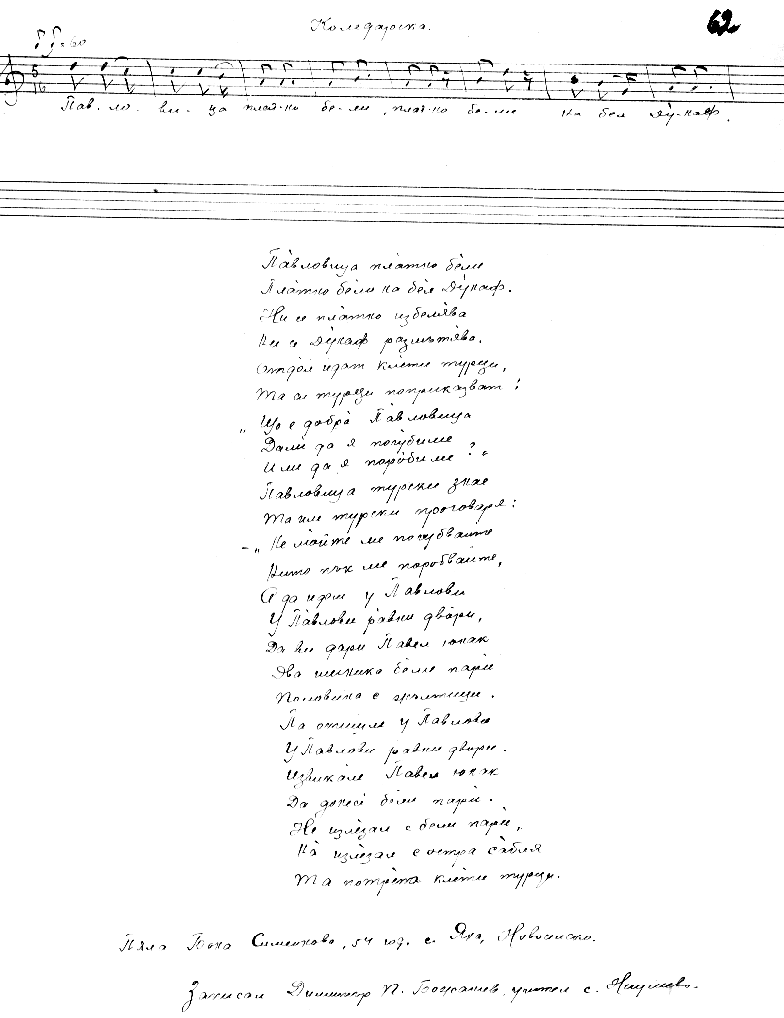 Коледарска.
62
5
16
= 60
Пав - ло - ви - ца плат-но бе - ли, плат-но бе - ли на бел Ду-наф.
Па̀вловица пла̀тно бѐли
Пла̀тно бѐли на бѐл Ду̀наф.
Ни се пла̀тно избеля̀ва
Ни се Ду̀наф размътя̀ва.
Отдо̀л идат клѐти турци,
Та си турци поприказват:
„Що е добра̀ Па̀вловица
Далѝ да я погу̀биме
Или да я поро̀биме?“
Павловица турски знае
Та им турски проговаря:
– „Не мо̀йте ме погубвайте
Нито пък ме поробвайте,
А да идем у Павлови
У Па̀влови ра̀вни дво̀ри,
Да ви дари Павел юнак
Два шиника бѐли парѝ
Половина с жълтици.
Па отишле у Павлови
У Павлови равни двори.
Извика̀ле Павел юнак
Да донесѐ бѐли парѝ.
Не излѐзал с бели парѝ,
На̀ излѐзал с остра са̀бля
Та потрепа клѐти турци.
Пяла Бона Симеонова, 54 год. с. Яна, Новоселско.
Записал Димитър П. учител с.